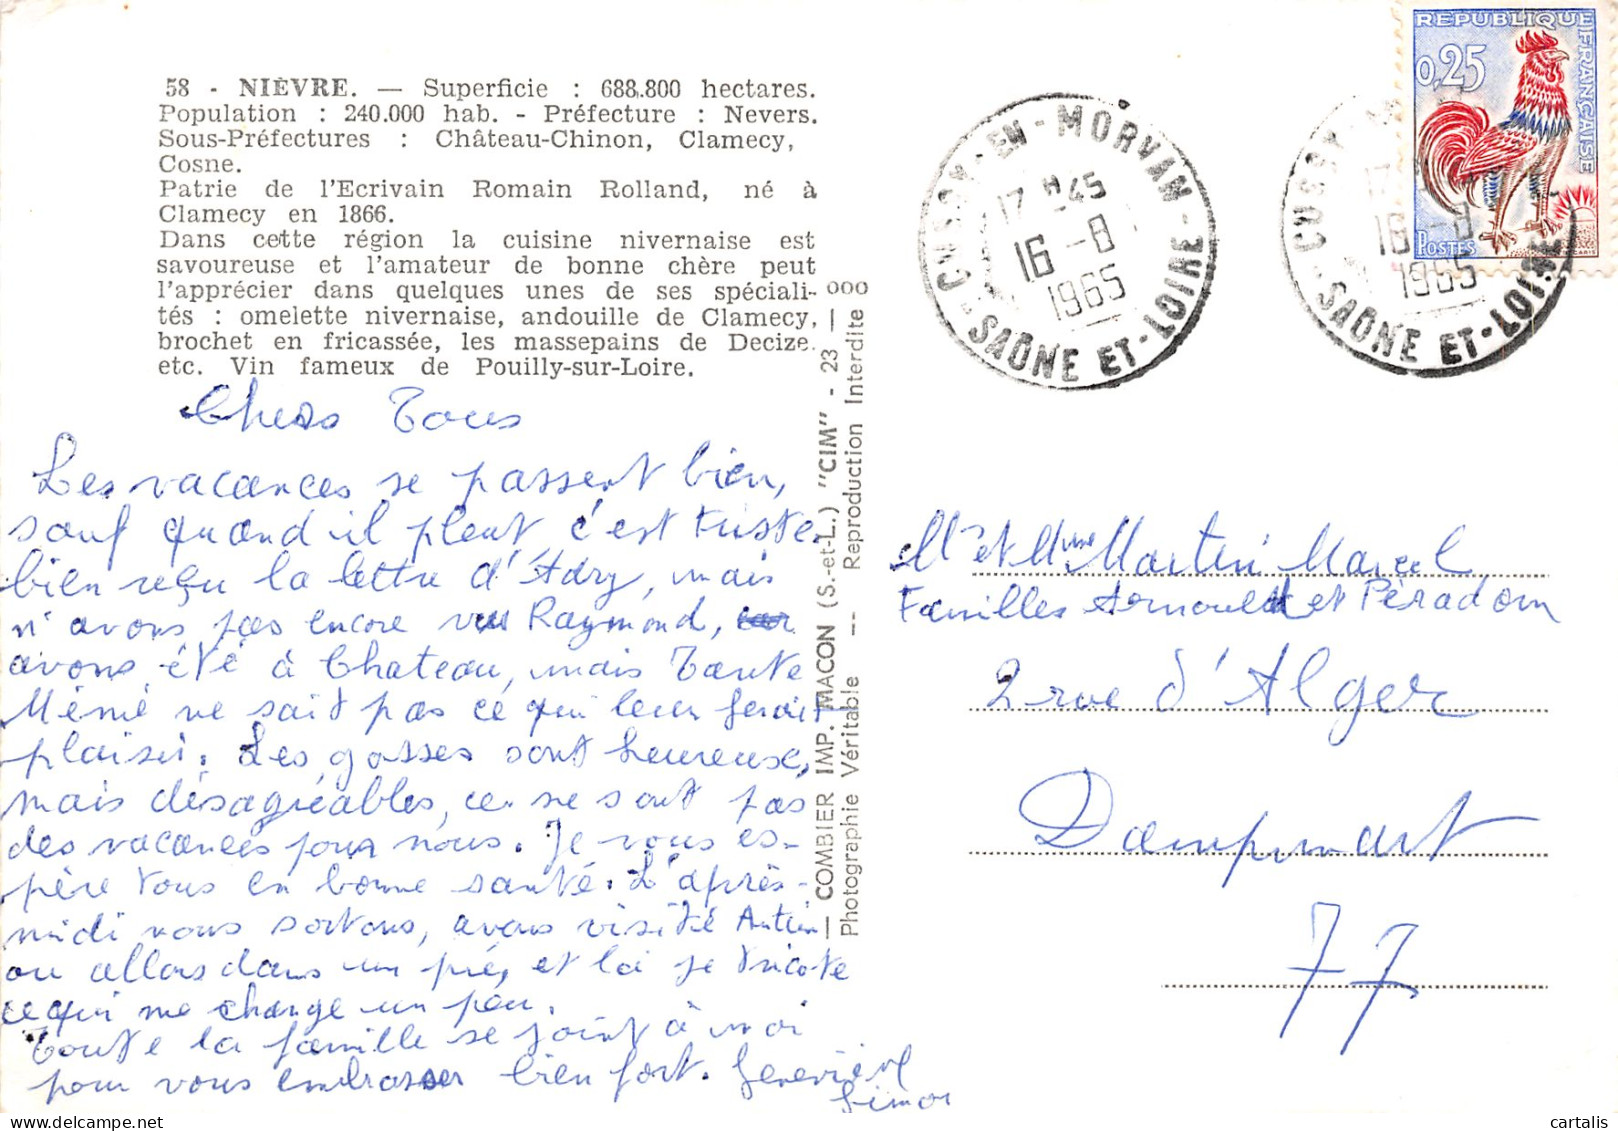 58 - NIÈVRE. — Superficie : 688.800 hectares.
Population : 240.000 hab. - Préfecture : Nevers.
Sous-Préfectures : Château-Chinon, Clamecy,
Cosne.
Patrie de l'Ecrivain Romain Rolland, né à
Clamecy en 1866.
Dans cette région la cuisine nivernaise est
savoureuse et l'amateur de bonne chère peut
l'apprécier dans quelques unes de ses spéciali-
tés : omelette nivernaise, andouille de Clamecy,
brochet en fricassée, les massepains de Decize.
etc. Vin fameux de Pouilly-sur-Loire.
Chers Tous
Les vacances se passent bien,
sauf quand il pleut c'est triste.
bien reçu la lettre d'Adry, mais
n'avons pas encore vus Raymond,
avons été à Chateau, mais Tante
Mémé ne sait pas ce qui leur ferait
plaisir. Les gosses sont heureuse,
mais désagréables, ce ne sont pas
des vacances pour nous. Je vous es-
père tous en bonne santé. L'après-
midi nous sortons, avons visité Autun
ou allons dans un pré, et là je tricote
ce qui me change un peu.
Toute la famille se joint à moi
pour vous embrasser bien fort. Geneviève
Simon
— COMBIER IMP. MACON (S.-et-L.) "CIM" - 23 — ooo
Photographie Véritable -- Reproduction Interdite
CUSSY-EN-MORVAN - SAÔNE ET-LOIRE
17 H45
16 -8
1965
REPUBLIQUE FRANÇAISE
0,25
POSTES
CUSSY
SAÔNE ET-LOIRE
17
16 -8
1965
Mr et Mme Martin Marcel
Familles Arnould et Péradon
2 rue d'Alger
Dampmart
77
cartalis